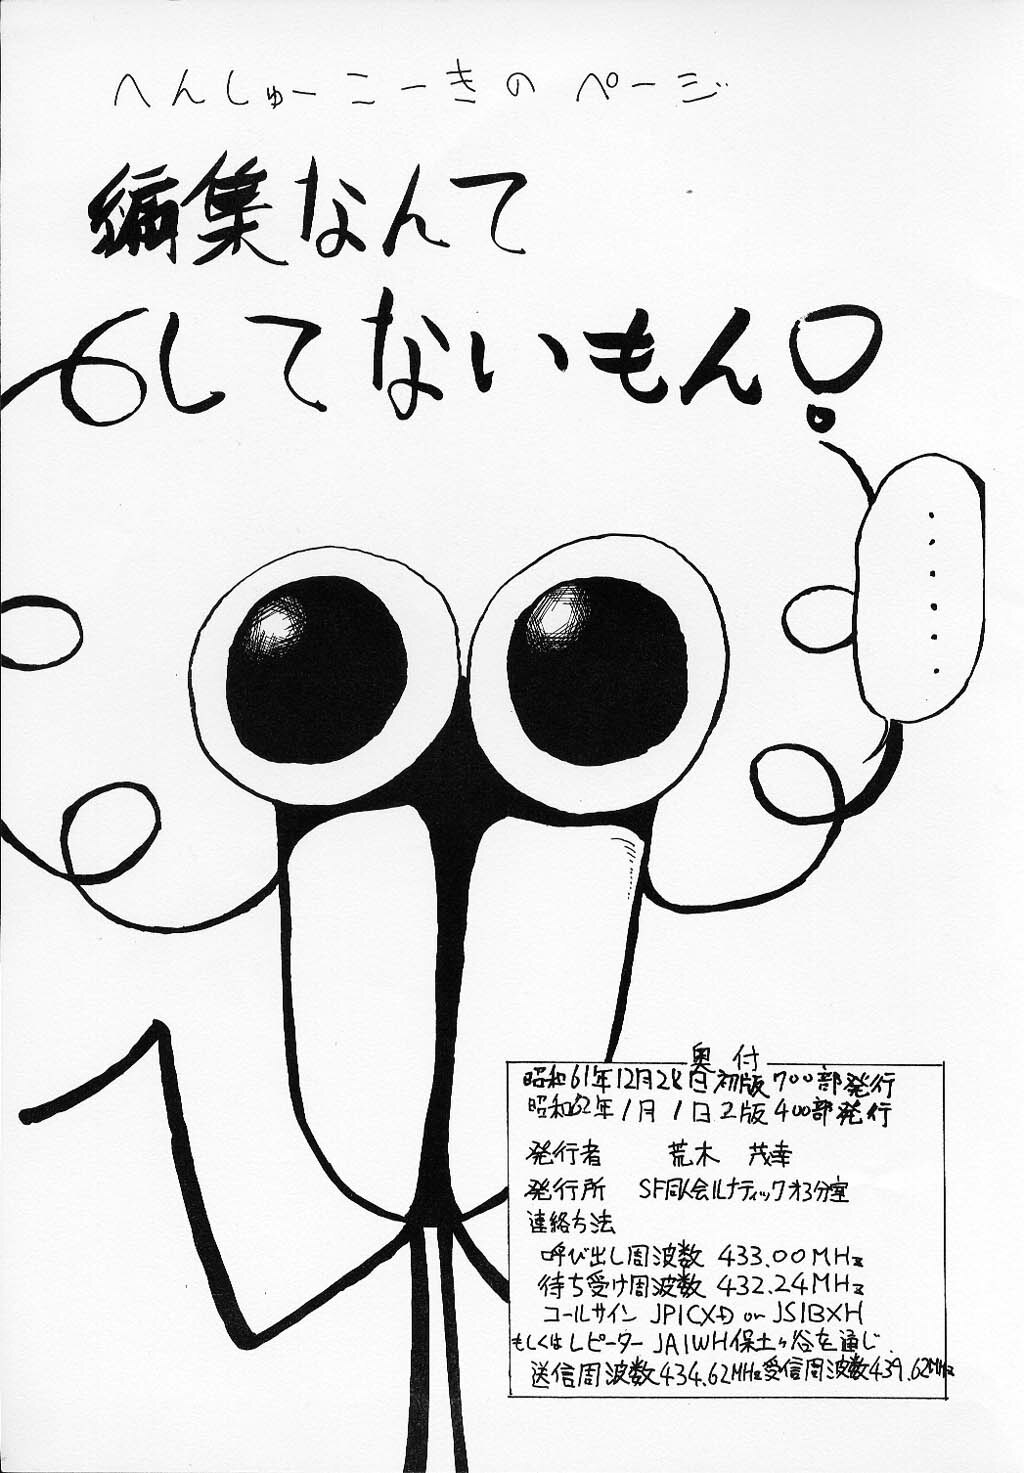 へんしゅーこーきの ページ
編集なんて
してないもん!
......
奥付
昭和61年12月28日初版700部発行
昭和62年1月1日2版400部発行
発行者 荒木 茂幸
発行所 SF同人会ルナティックオ3分室
連絡方法
呼び出し周波数 433.00MHz
待ち受け周波数 432.24MHz
コールサイン JP1CXD or JS1BXH
もしくはレピーター JA1WH保土ヶ谷を通じ.
送信周波数434.62MHz受信周波数439.62MHz